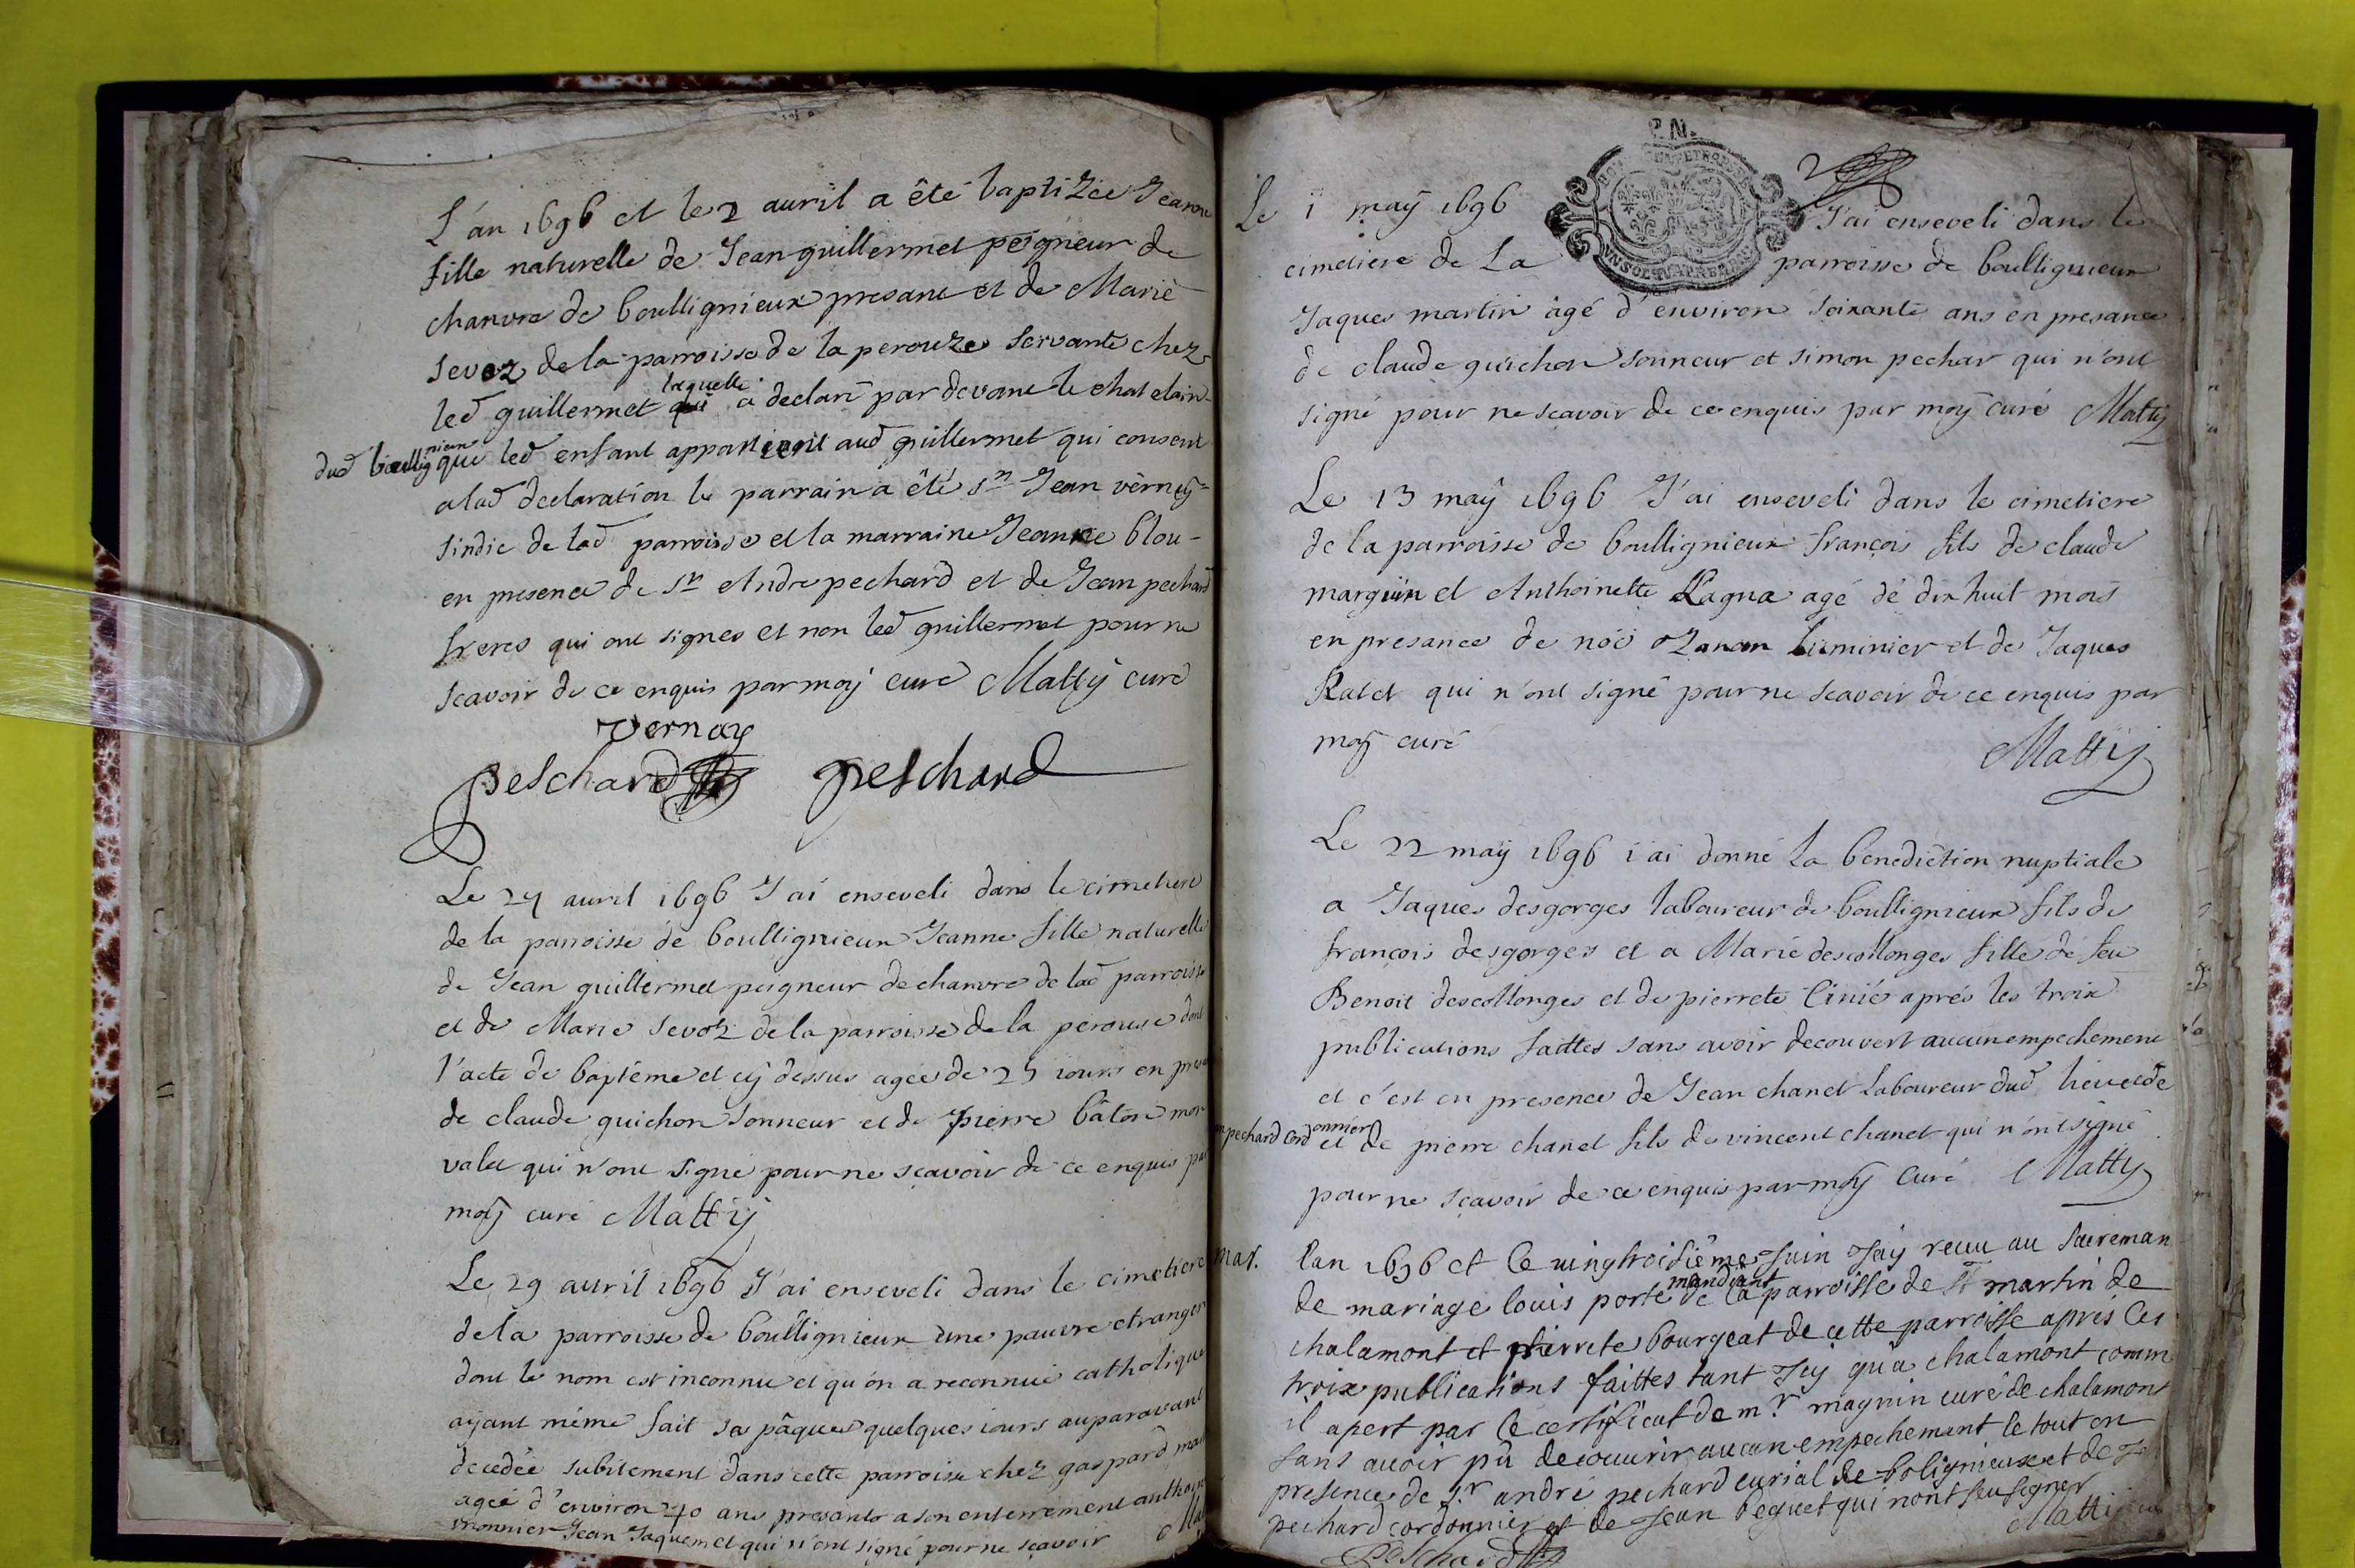 L'an 1696 et le 2 auril a êté baptizée Jeanne
fille naturelle de Jean guillermet peigneur de
chanvre de boullignieux presant et de Marie
sevoz de la parroisse de la perouze servante chez
led guillermet laquelle a declaré par devant le chatelain
dud boullignieux que led enfant appartient aud guillermet qui consent
a lad declaration le parrain a êté sr Jean verney
sindic de lad parroisse et la marraine Jeanne blou-
en presence de sr Andre pechard et de Jean pechard
freres qui ont signes et non led guillermet pour ne
scavoir de ce enquis par moy curé Matty curé
vernay
peschard peschard
Le 24 auril 1696 J'ai enseveli dans le cimetiere
de la parroisse de boullignieux Jeanne fille naturelle
de Jean guillermet peigneur de chanvre de lad parroisse
et de Marie sevoz de la parroisse de la perouse dont
l'acte de baptême et cy dessus agée de 25 iours en
de claude guichon sonneur et de pierre bâton mon
valet qui n'ont signé pour ne scavoir de ce enquis par
moy curé Matty
Le 29 auril 1696 J'ai enseveli dans le cimetiere
de la parroisse de boullignieux une pauvre etrangere
dont le nom est inconnu et qu'on a reconnuë catholique
ayant même fait sa pâques quelques iours auparavant
decedée subitement dans cette parroisse chez gaspard
agée d'environ 40 ans presants a son enterrement
monnier Jean Jaquemet qui n'ont signé pour ne scavoir
Le 1 may 1696 J'ai enseveli dans le
cimetiere de La parroisse de boullignieux
Jaques martin âgé d'environ soixante ans en presance
de claude guichon sonneur et simon pechar qui n'ont
signé pour ne scavoir de ce enquis par moy curé Matty
Le 13 may 1696 J'ai enseveli dans le cimetiere
de la parroisse de boullignieux françois fils de claude
marguin et Anthoinette Ragna agé de dix huit mois
en presance de noë ozanan luminier et de Jaques
Ratet qui n'ont signé pour ne scavoir de ce enquis par
moy curé
Matty
Le 22 may 1696 i'ai donné la benediction nuptiale
a Jaques desgorges laboureur de boullignieux fils de
françois desgorges et a Marie descollonges fille de feu
Benoit descollonges et de pierrete Cinié aprés les trois
publications faittes sans avoir decouvert aucun empechement
et c'est en presence de Jean chanet laboureur dud lieu et de
pechard cordonnier et de pierre chanet fils de vincent chanet qui n'ont signé
pour ne scavoir de ce enquis par moy curé Matty
mar. lan 1696 et le vingtroisiême Juin Jay recu au sacreman
de mariage louis porte mandiant de la parroisse de st martin de
chalamont et pierrete bourgeat de cette parroisse apres les
trois publications faittes tant Jcy qu'a chalamont comm
il apert par le certificat de mr magnin curé de chalamont
sans avoir pû decouvrir aucun empechemant le tout en
presence de sr andré pechard curial de bolignieux et de
pechard cordonnier et de Jean beguet qui nont seu signer
Matty
peschard